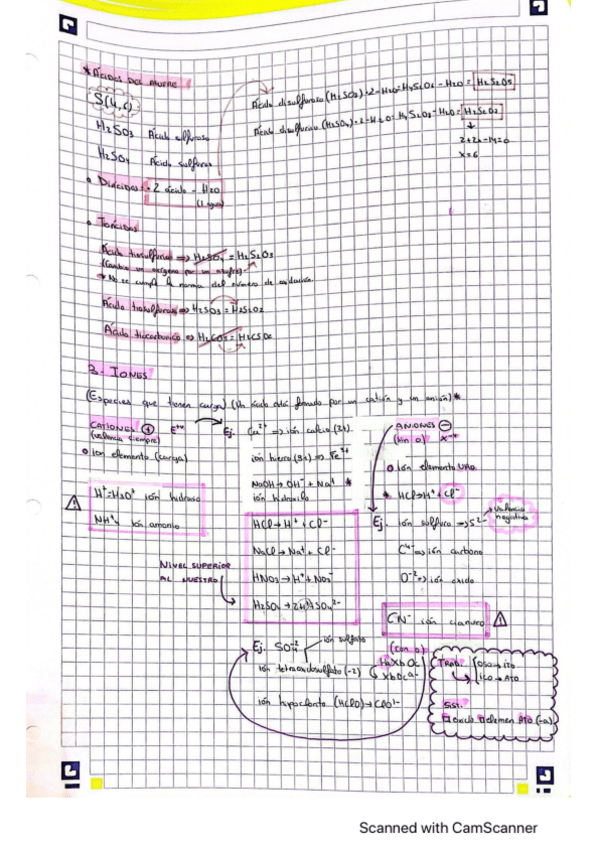 * Ácidos del azufre
S(4,6)
H2SO3 Ácido sulfuroso
H2SO4 Ácido sulfúrico
Ácido disulfuroso (H2SO3)·2-H2O=H4S2O6-H2O= H2S2O5
Ácido disulfúrico (H2SO4)·2-H2O= H4S2O8-H2O= H2S2O7
2+2x-14=0
x=6
• Diácidos: 2 ácido - H2O
• Tioácidos
Ácido tiosulfúrico => H2SO4 = H2S2O3
(Cambia un oxígeno por un azufre)
* No se cumple la norma del número de oxidación
Ácido tiosulfuroso => H2SO3 = H2S2O2
Ácido tiocarbónico => H2CO3 = H2CSO2
3.- IONES
(Especies que tienen carga) (Un ácido está formado por un catión y un anión) *
CATIONES +
(valencia siempre)
Ion elemento (carga)
H+=H3O+ ión hidrógeno
NH4+ ión amonio
Ej. => ión calcio (2+)
ión hierro (3+) => Fe3+
NaOH → OH- + Na+ *
ión hidroxilo
HCl → H+ + Cl-
NaCl → Na+ + Cl-
HNO3 → H+ + NO3-
H2SO4 → 2H+ SO4 2-
NIVEL SUPERIOR
AL NUESTRO
ANIONES -
(sin O) X-n
Ion elemento uro
* HCl → H+ + Cl-
Ej. ión sulfuro => S2-
valencia
negativa
C4- => ión carburo
O-2 => ión óxido
CN- ión cianuro
(con O)
HaXbOc
XbOc a-
Ej. SO4-2
ión sulfato
ión tetraoxidosulfato (-2)
ión hipoclorito (HClO) → ClO1-
TRAD.
OSO → ITO
ICO → ATO
SST.
Scanned with CamScanner